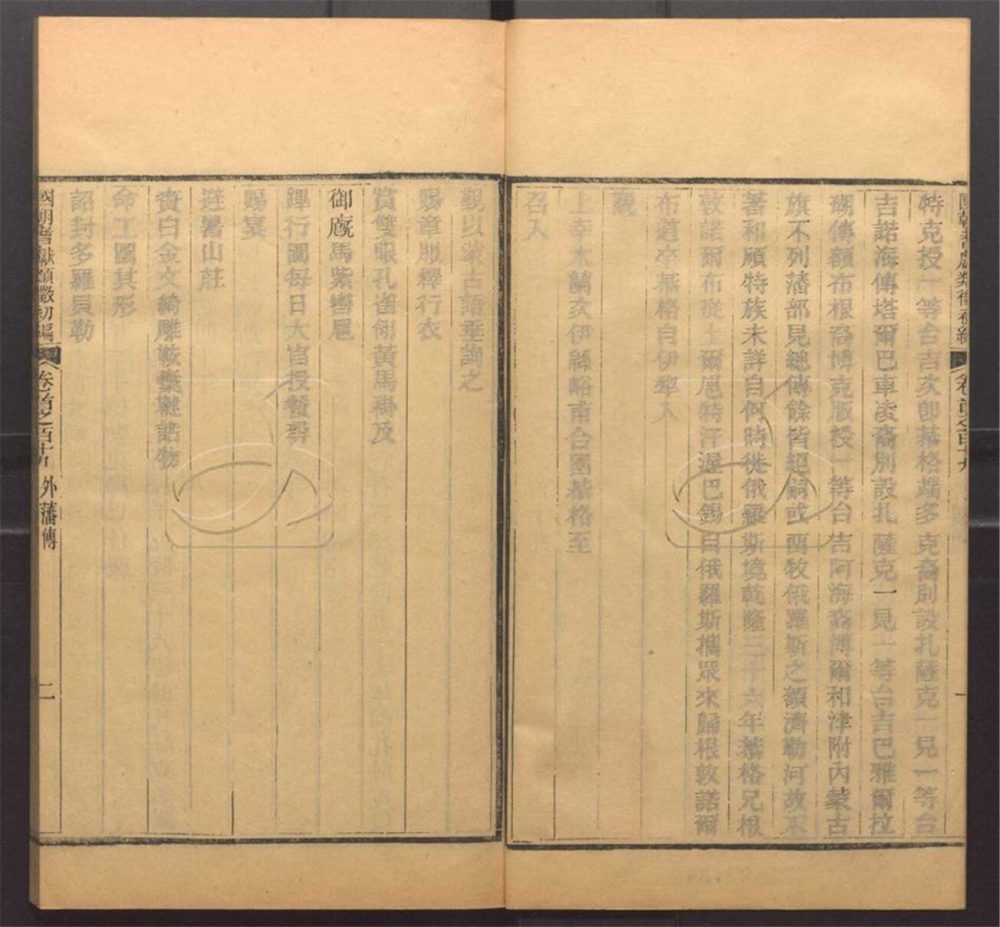 特克授一等台吉次卽恭格端多克裔別設扎薩克一見一等台
吉諾海傳塔爾巴車凌裔別設扎薩克一見一等台吉巴雅爾拉
瑚傳額布根裔博克班授一等台吉阿海裔博爾和津附內蒙古
旗不列藩部見總傳餘皆絕嗣或遊牧俄羅斯之額濟勒河故不
著和碩特族未詳自何時徙俄羅斯境乾隆三十六年恭格兄根
敦諾爾布從土爾扈特汗渥巴錫自俄羅斯攜眾來歸根敦諾爾
布道卒恭格自伊犂入
覲
上幸木蘭次伊緜峪甫合圍恭格至
召入
觀以蒙古語垂詢之
賜章服釋行衣
賞雙眼孔雀翎黃馬褂及
御廄馬紫轡尾
蹕行圍每日大官授餐尋
賜宴
避暑山莊
賚白金文綺雕鞍櫜鞬諸物
命工圖其形
詔封多羅貝勒
國朝耆獻類徵初編
外藩傳
二